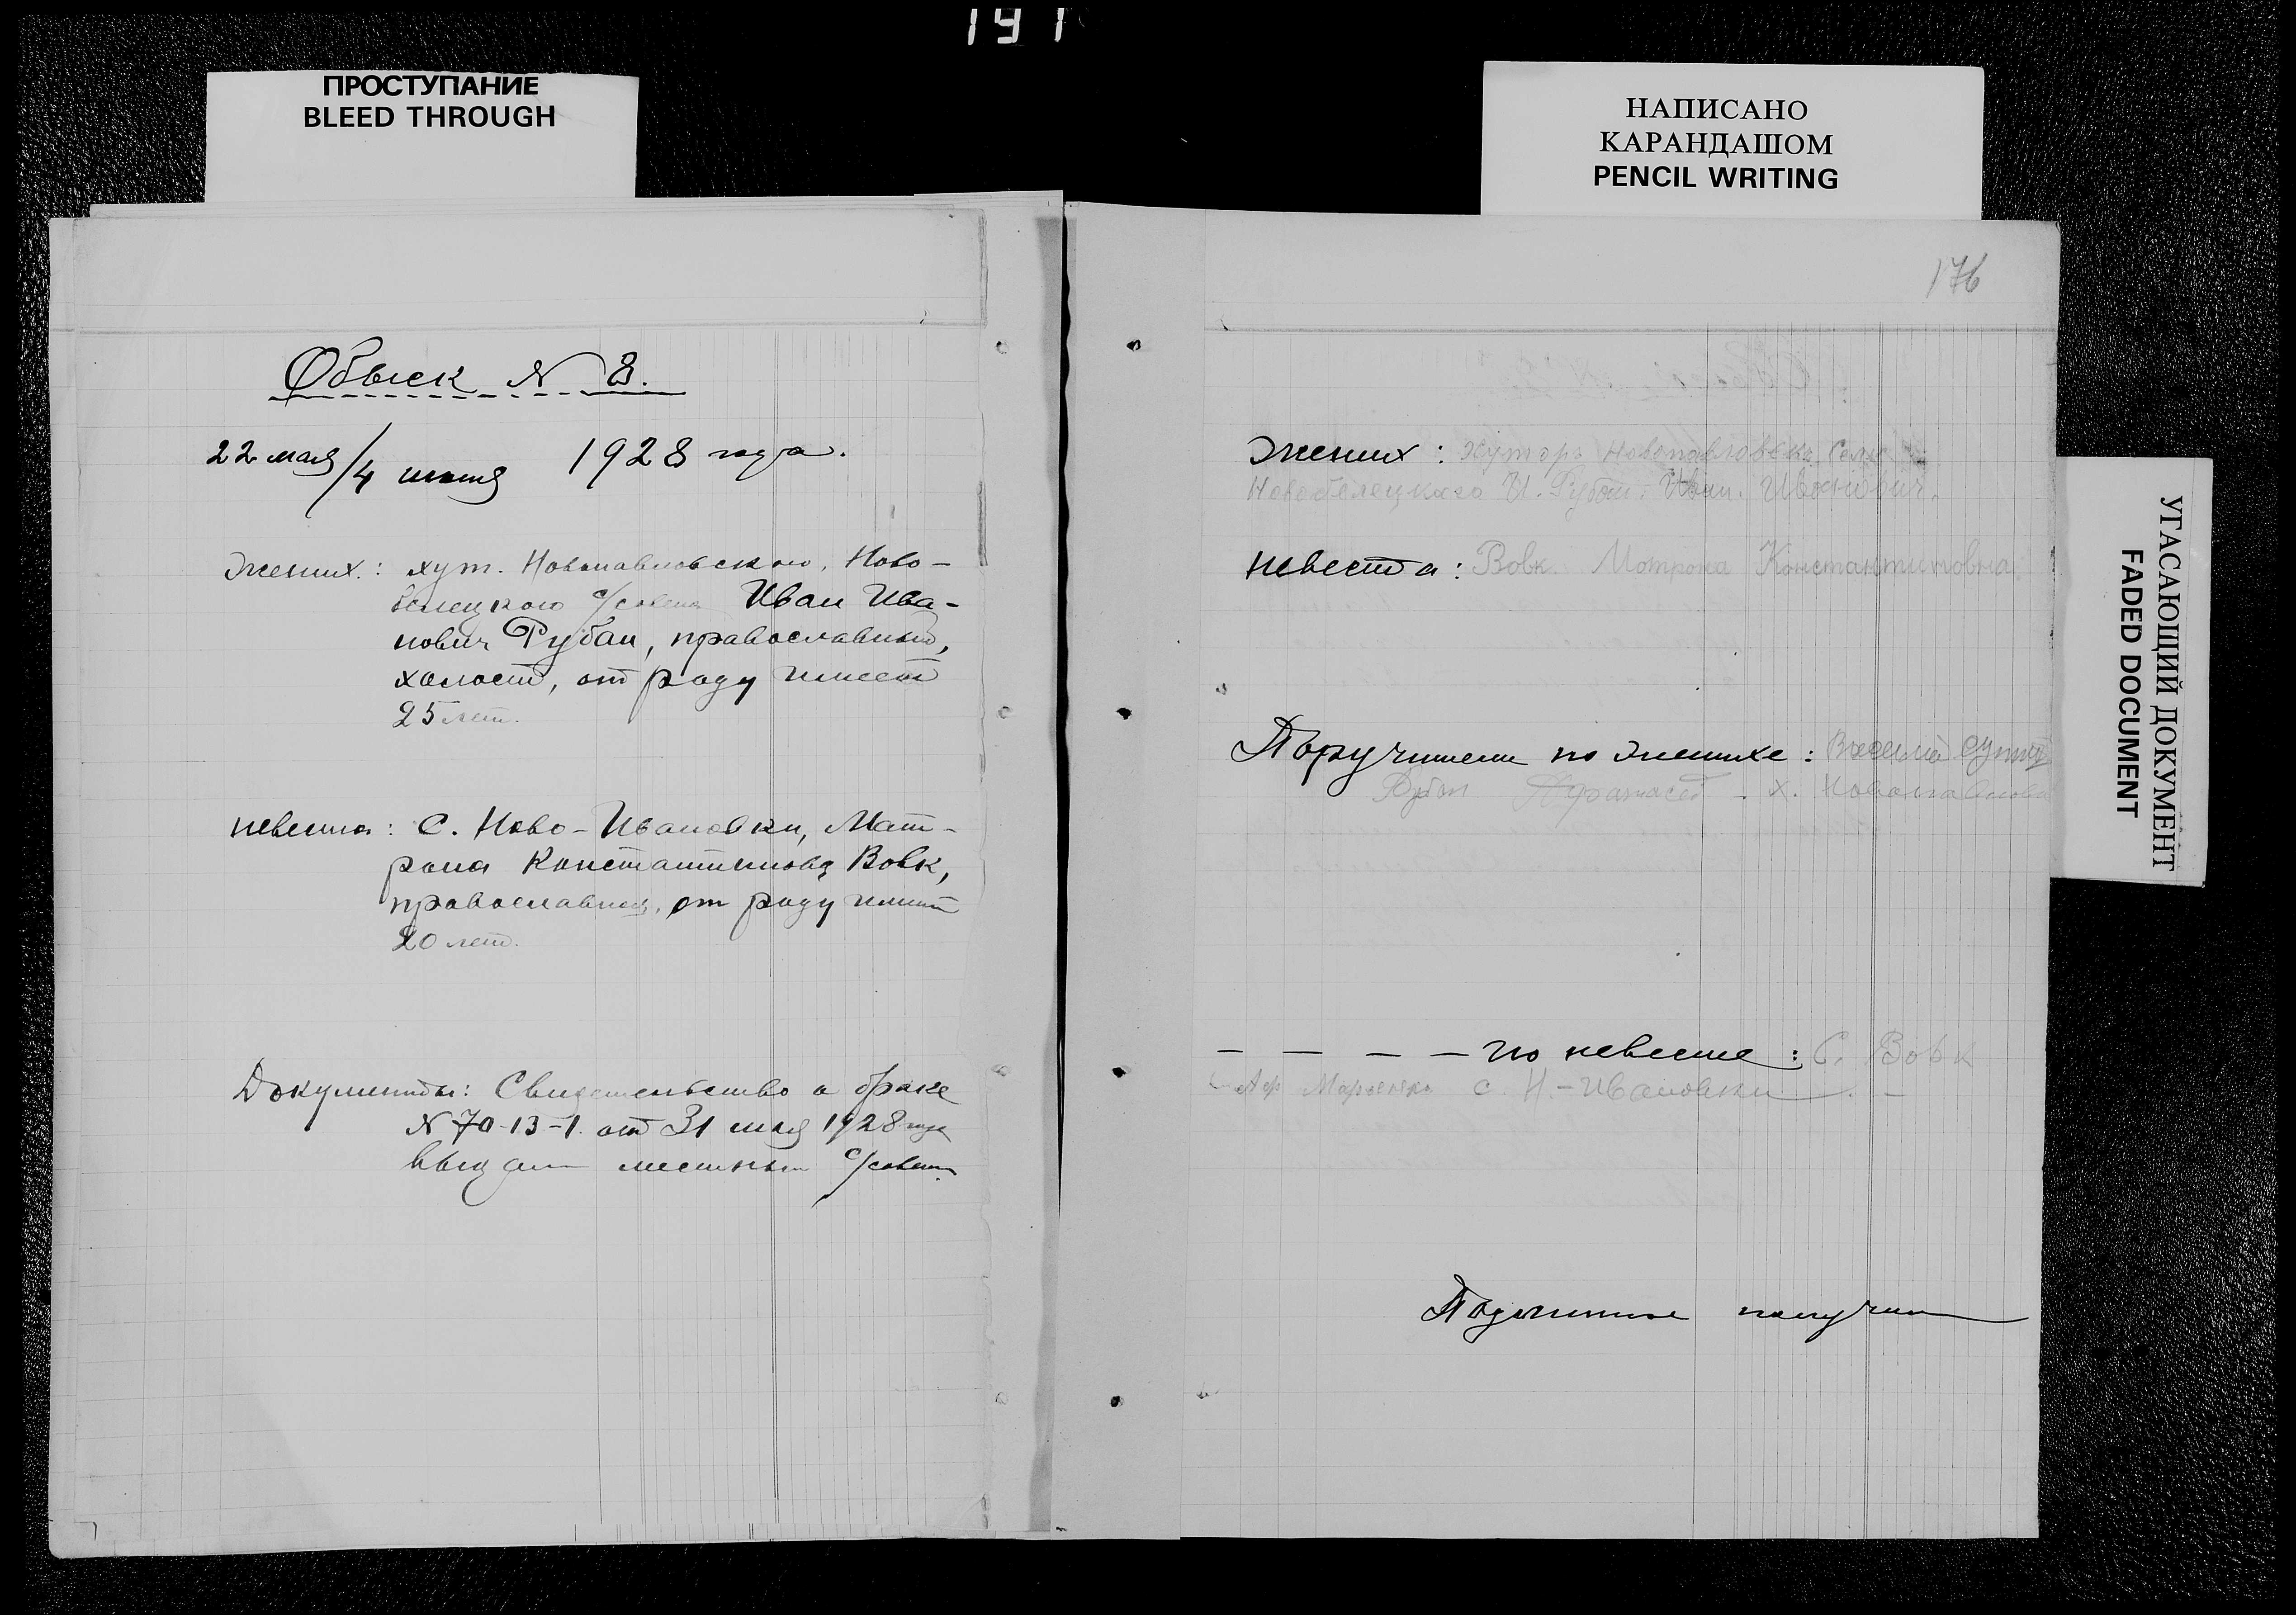 191
ПРОСТУПАНИЕ
BLEED THROUGH
НАПИСАНО
КАРАНДАШОМ
PENCIL WRITING
УГАСАЮЩИЙ ДОКУМЕНТ
FADED DOCUMENT
Обыск N 8.
22 мая/4 июня 1928 года.
Жених: хут. Новопавловского, Ново-
белецкого с/совета Иван Ива-
нович Рубан, православный,
холост, от роду имеет
25 лет.
невеста: с. Ново-Ивановки, Мат-
рона Константинова Вовк,
православная, от роду имеет
20 лет.
Документы: Свидетельство о браке
N 70-13-1 от 31 мая 1928 года
выдан местным с/советом.
176
Жених: хутора Новопавловска
Новобелецкаго Рубан Иван Иванович.
невеста: Вовк Мотрона Константиновна
Поручители по женихе:
Рубан х. Новопавловка
— — — — по невесте: С. Вовк
Марченко с. Н-Ивановки
получил